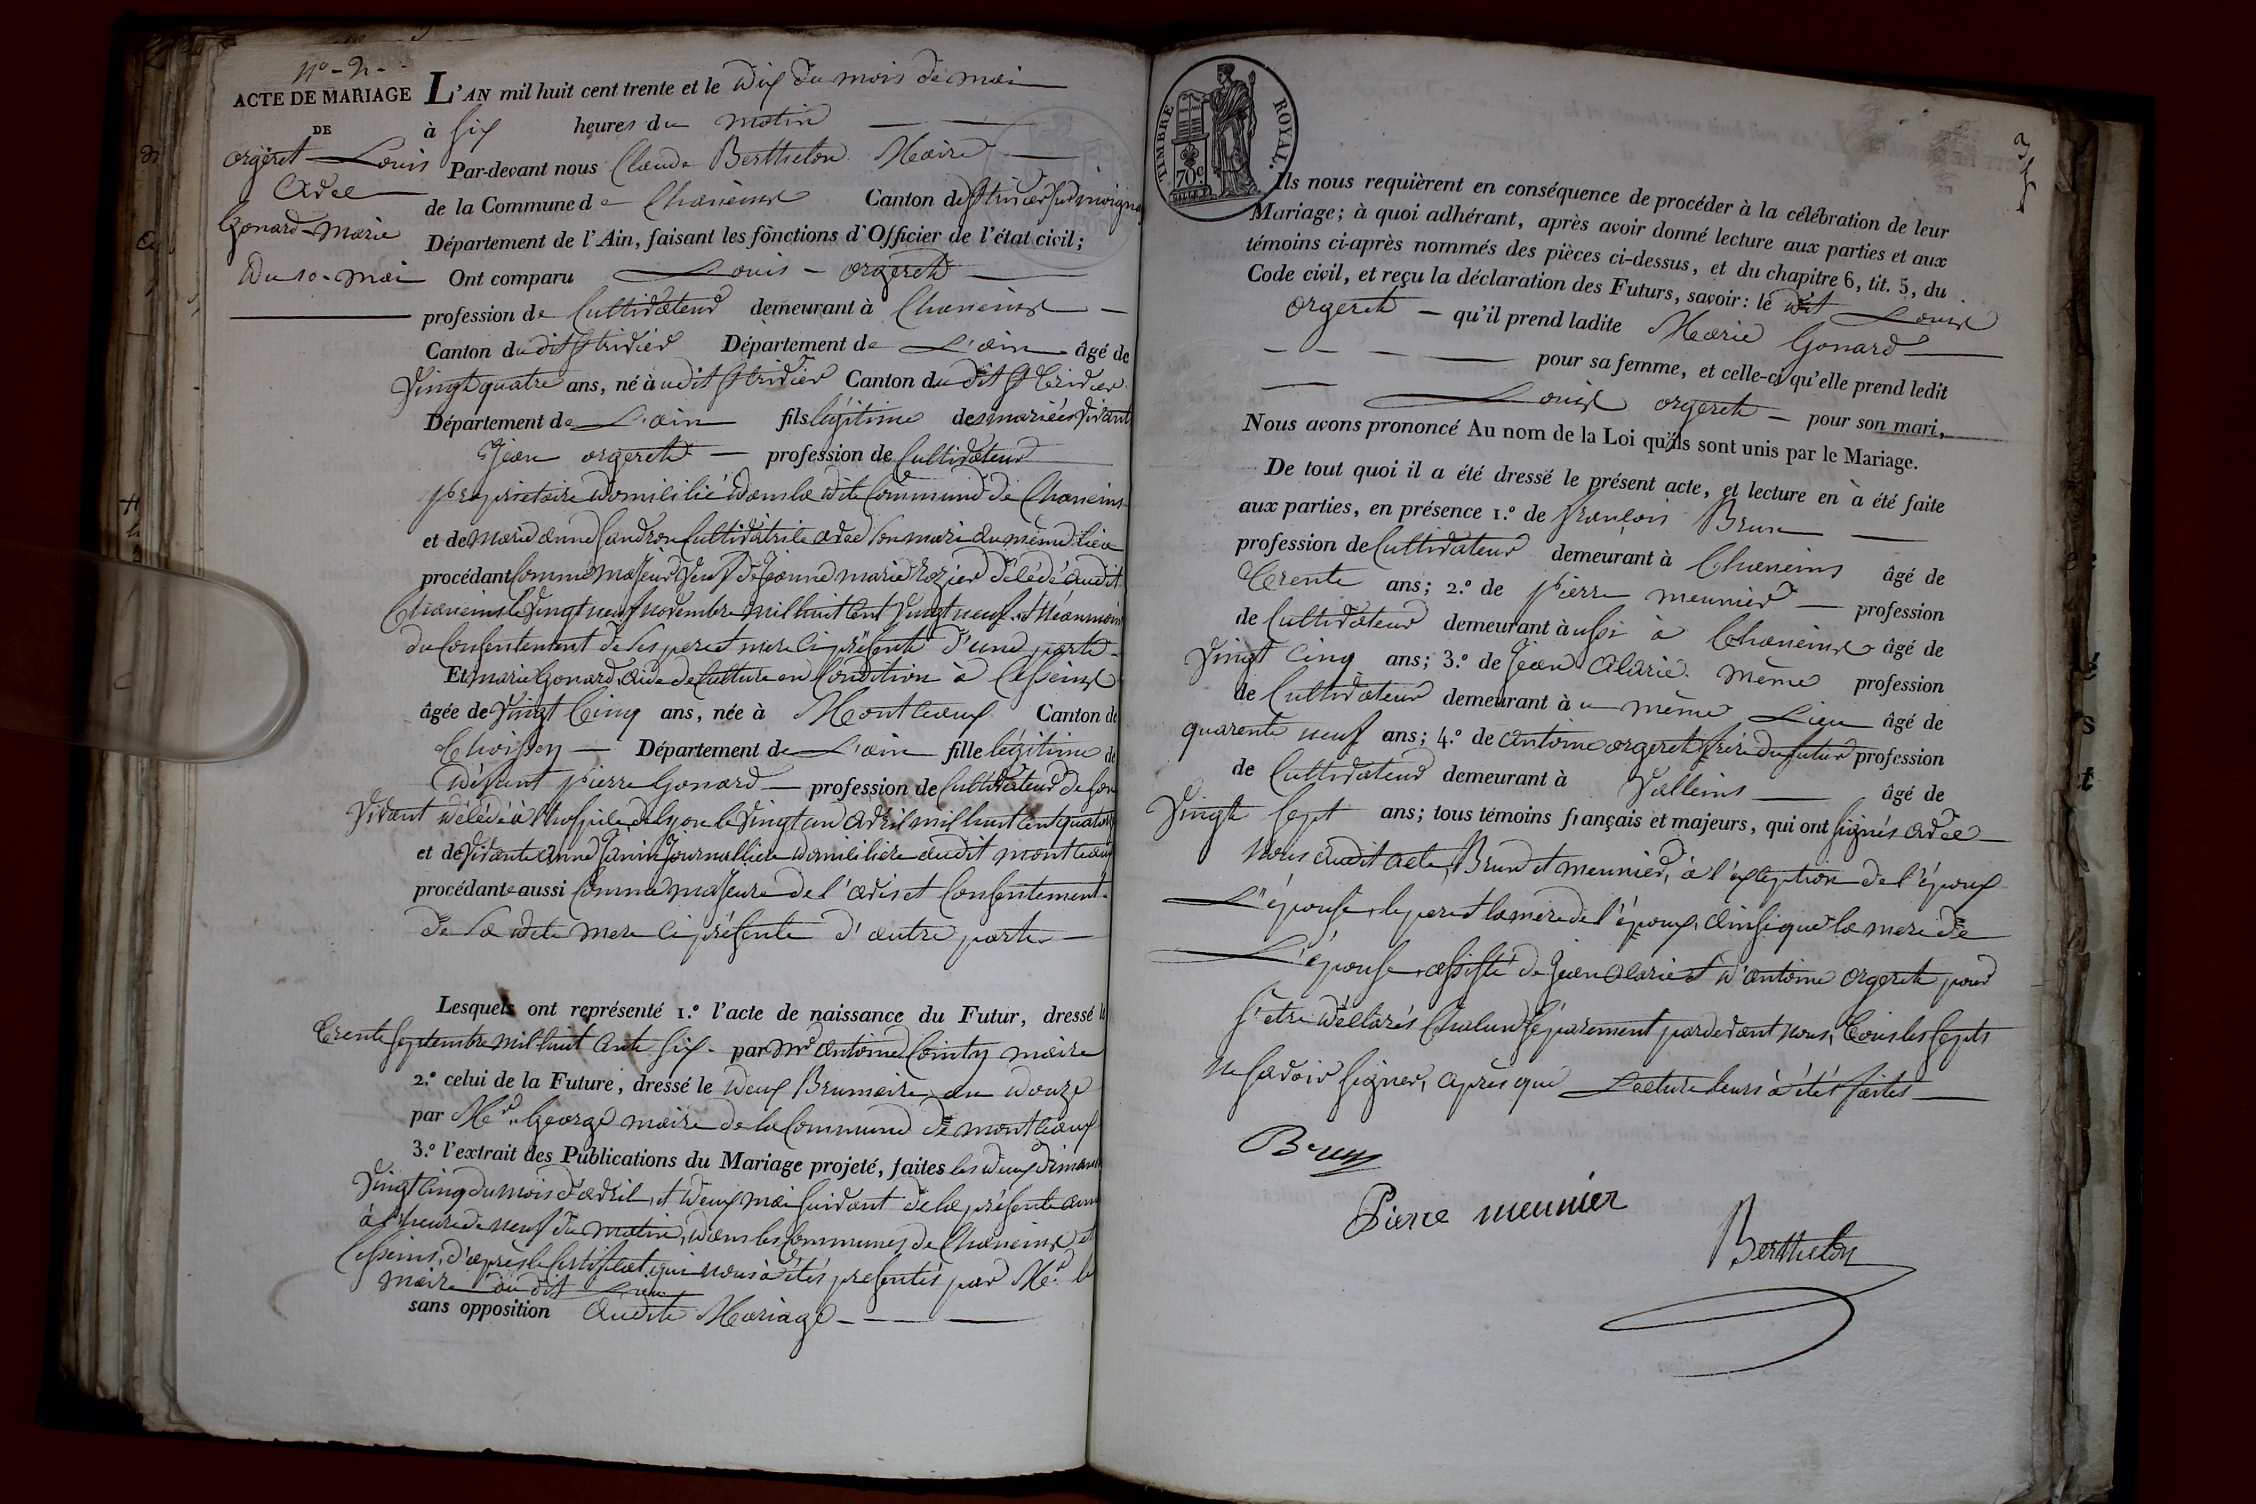 N.º - 2 -
ACTE DE MARIAGE
DE
orgeret Louis
avec
Gonard - Marie
Du 10 - mai
L'AN mil huit cent trente et le dix du mois de mai
à six heures du matin
Par-devant nous Claude Berthelon Maire
de la Commune de Chaneins Canton de St trivier sur moignans
Département de l'Ain, faisant les fonctions d'Officier de l'état civil;
Ont comparu Louis - orgeret
profession de Cultivateur demeurant à Chaneins
Canton du dit St trivier Département de L'ain âgé de
Vingt quatre ans, né à udit St trivier Canton du dit St trivier
Département de L'ain fils légitime des mariées vivant
Jean orgeret profession de Cultivateur
proprietaire domicilié dans la dite Commune de Chaneins
et de marie anne Candron Cultivatrice avec son mari au même lieu
procédant Comme majeur veuf de jeanne marie Rozier décédé audit
Chaneins le vingt neuf novembre mil huit cent vingt neuf et néanmoins
du Consentement de ses pere et mere ci présente d'une parte
Et marie Gonard, aide de Culture en Condition à Cesseins
âgée de Vingt Cinq ans, née à Montceaux Canton de
Thoissey Département de L'ain fille légitime de
défunt pierre Gonard profession de Cultivateur de son
vivant décédé à l'hospice de Lyon le vingt un avril mil huit cent quatorze
et de vivante anne Janin Journalliere domiciliere audit montceaux
procédante aussi Comme majeure de l'avis et Consentement
de sa dite mere ci présente d'autre parte
Lesquels ont représenté 1.º l'acte de naissance du Futur, dressé le
trente septembre mil huit cent six par Mr antoine Cointy maire
2.º celui de la Future, dressé le deux Brumaire an douze
par Mr George maire de la Commune de montceaux
3.º l'extrait des Publications du Mariage projeté, faites les deux dimanches
vingt cinq du mois d'avril, et deux mai suivant de la présente année
à l'heure de neuf du matin, dans les Communes de Chaneins et
Cesseins, d'après le Certificat qui nous à étés presentés par Mr le
maire du dit Lieu
sans opposition audite Mariage
TIMBRE ROYAL.
70c
Ils nous requièrent en conséquence de procéder à la célébration de leur
Mariage; à quoi adhérant, après avoir donné lecture aux parties et aux
témoins ci-après nommés des pièces ci-dessus, et du chapitre 6, tit. 5, du
Code civil, et reçu la déclaration des Futurs, savoir: le dit Louis
orgeret qu'il prend ladite Marie Gonard
pour sa femme, et celle-ci qu'elle prend ledit
Louis orgeret pour son mari,
Nous avons prononcé Au nom de la Loi qu'ils sont unis par le Mariage.
De tout quoi il a été dressé le présent acte, et lecture en à été faite
aux parties, en présence 1.º de françois Brun
profession de Cultivateur demeurant à Chaneins âgé de
trente ans; 2.º de pierre meunier profession
de Cultivateur demeurant à ussi à Chaneins âgé de
vingt cinq ans; 3.º de Jean alarie même profession
de Cultivateur demeurant à u même Lieu âgé de
quarente neuf ans; 4.º de antoine orgeret frère du futur profession
de Cultivateur demeurant à Valleins âgé de
vingt sept ans; tous témoins français et majeurs, qui ont signés avec
nous audit acte, Brun et meunier, à l'exception de l'époux
L'épouse, le pere et la mère de l'époux, ainsi que la mere de
L'épouse, assisté de Jean alarie et d'antoine orgeret pour
s'etre déclarés Chalun séparement pardevant nous, tous les septs
ne savoir signer, après que Lecture leurs à étés faites
Brun
Pierre meunier
Berthelon